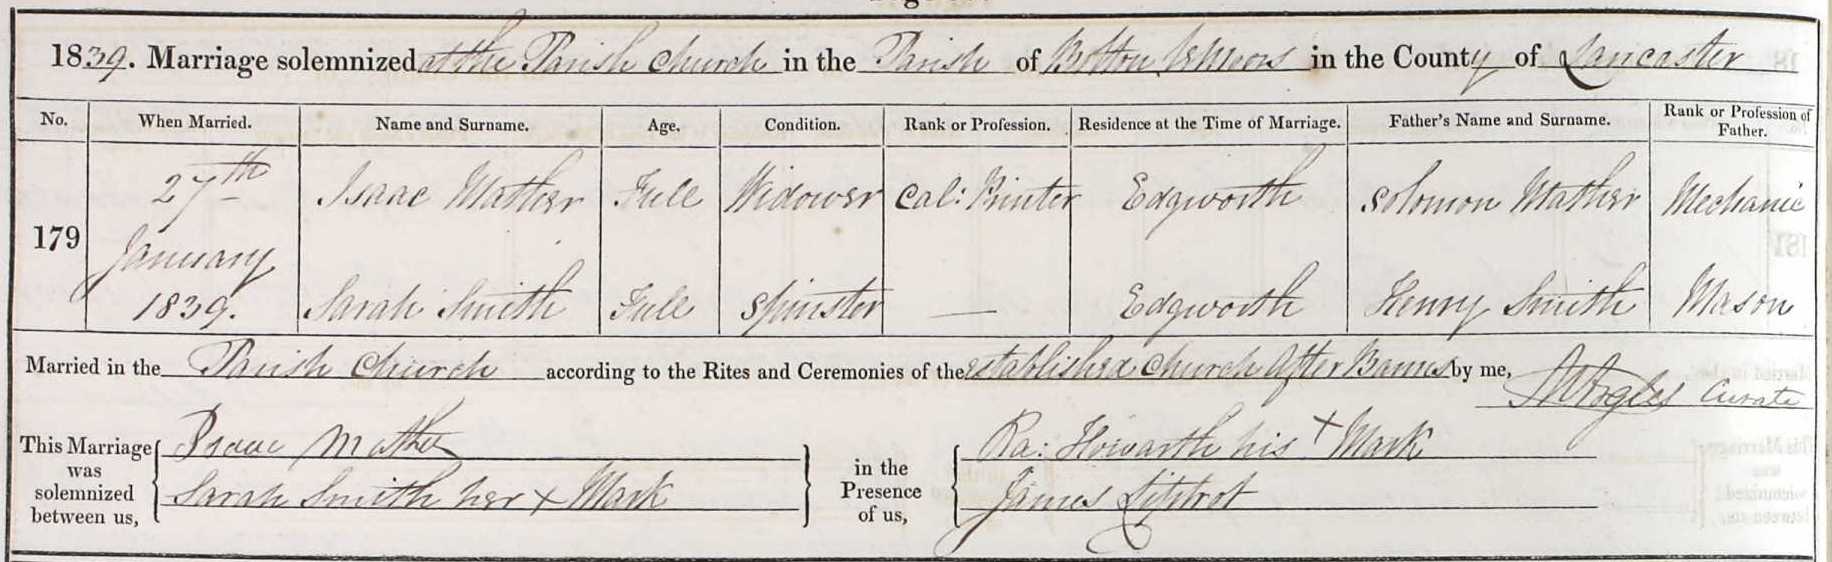 1839. Marriage solemnized at the Parish Church in the Parish of Bolton le Moors in the County of Lancaster
No. When Married. Name and Surname. Age. Condition. Rank or Profession. Residence at the Time of Marriage. Father's Name and Surname. Rank or Profession of Father.
179 27th January 1839. Isaac Mather Full Widower Cal: Printer Edgworth Solomon Mather Mechanic
Sarah Smith Full Spinster — Edgworth Henry Smith Mason
Married in the Parish Church according to the Rites and Ceremonies of the Established Church After Banns by me, Curate
This Marriage was solemnized between us, Isaac Mather in the Presence of us, Ra: Howarth his + Mark
Sarah Smith her + Mark James